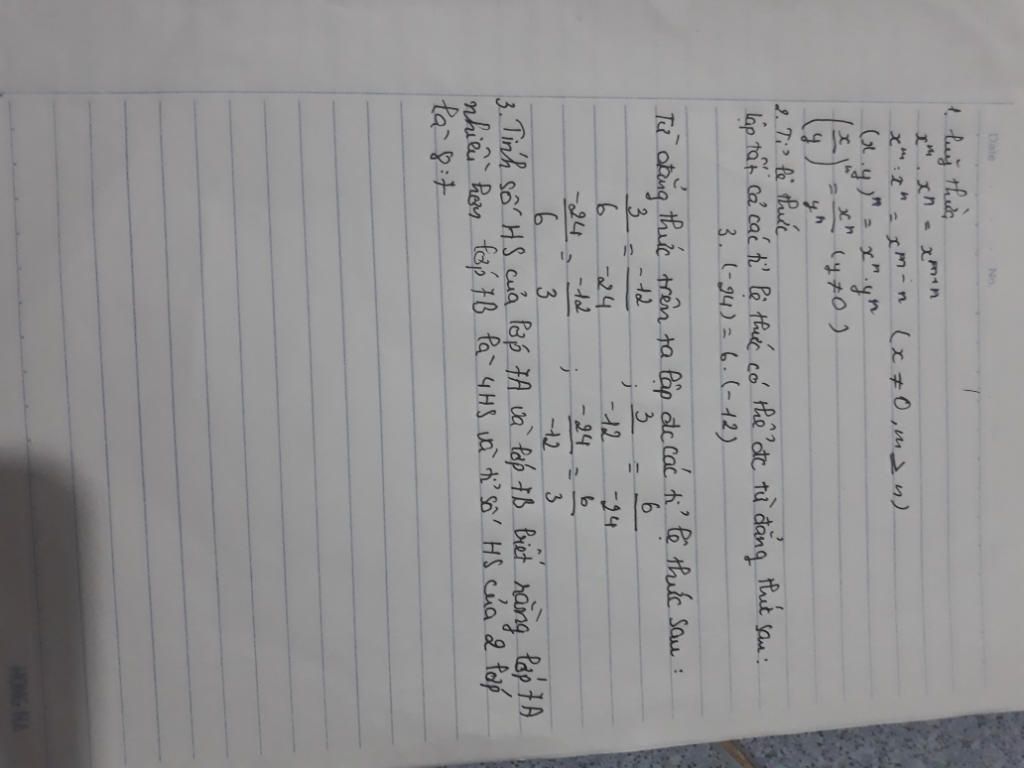 Date
No.
1. Luỹ thừa
x^m . x^n = x^{m+n}
x^m : x^n = x^{m-n} (x ≠ 0, m ≥ n)
(x.y)^n = x^n . y^n
(x/y)^n = x^n/y^n (y ≠ 0)
2. Tỉ lệ thức
lập tất cả các tỉ lệ thức có thể đc từ đẳng thức sau:
3. (-24) = 6. (-12)
Từ đẳng thức trên ta lập đc các tỉ lệ thức sau:
3/6 = -12/-24 ; 3/-12 = 6/-24
-24/6 = -12/3 ; -24/-12 = 6/3
3. Tính số HS của lớp 7A và lớp 7B biết rằng lớp 7A
nhiều hơn lớp 7B là 4HS và tỉ số HS của 2 lớp
là 8:7
HỒNG HÀ